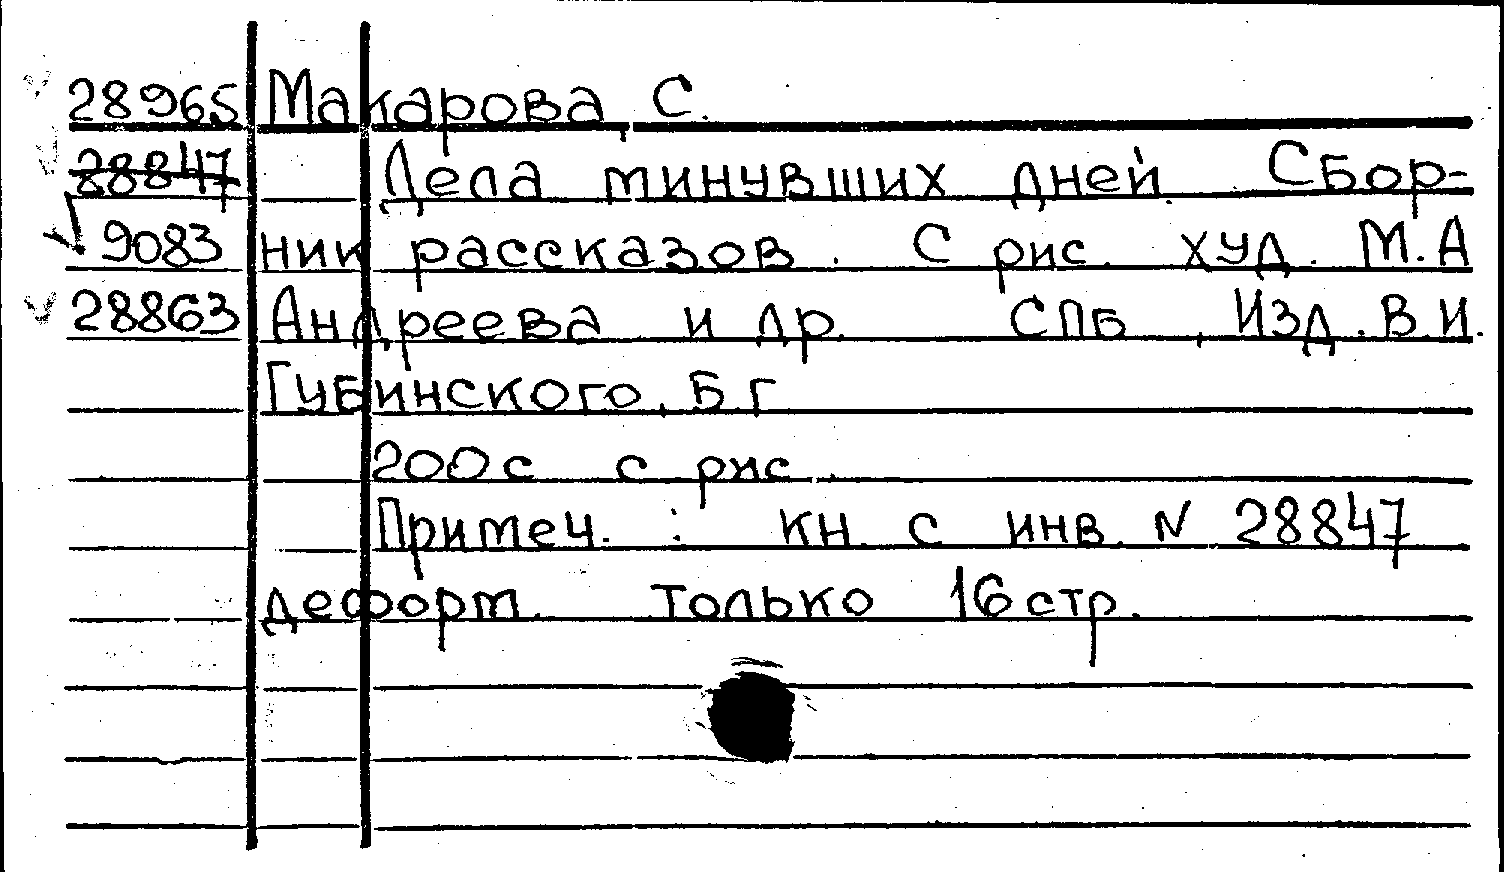 28965 Макарова, С.
28847 Дела минувших дней. Сбор-
9083 ник рассказов. С рис. худ. М.А
28863 Андреева и др. СПБ, Изд. В.И.
Губинского, Б.г
200с с рис.
Примеч. : кн. с инв. N 28847
деформ. только 16 стр.